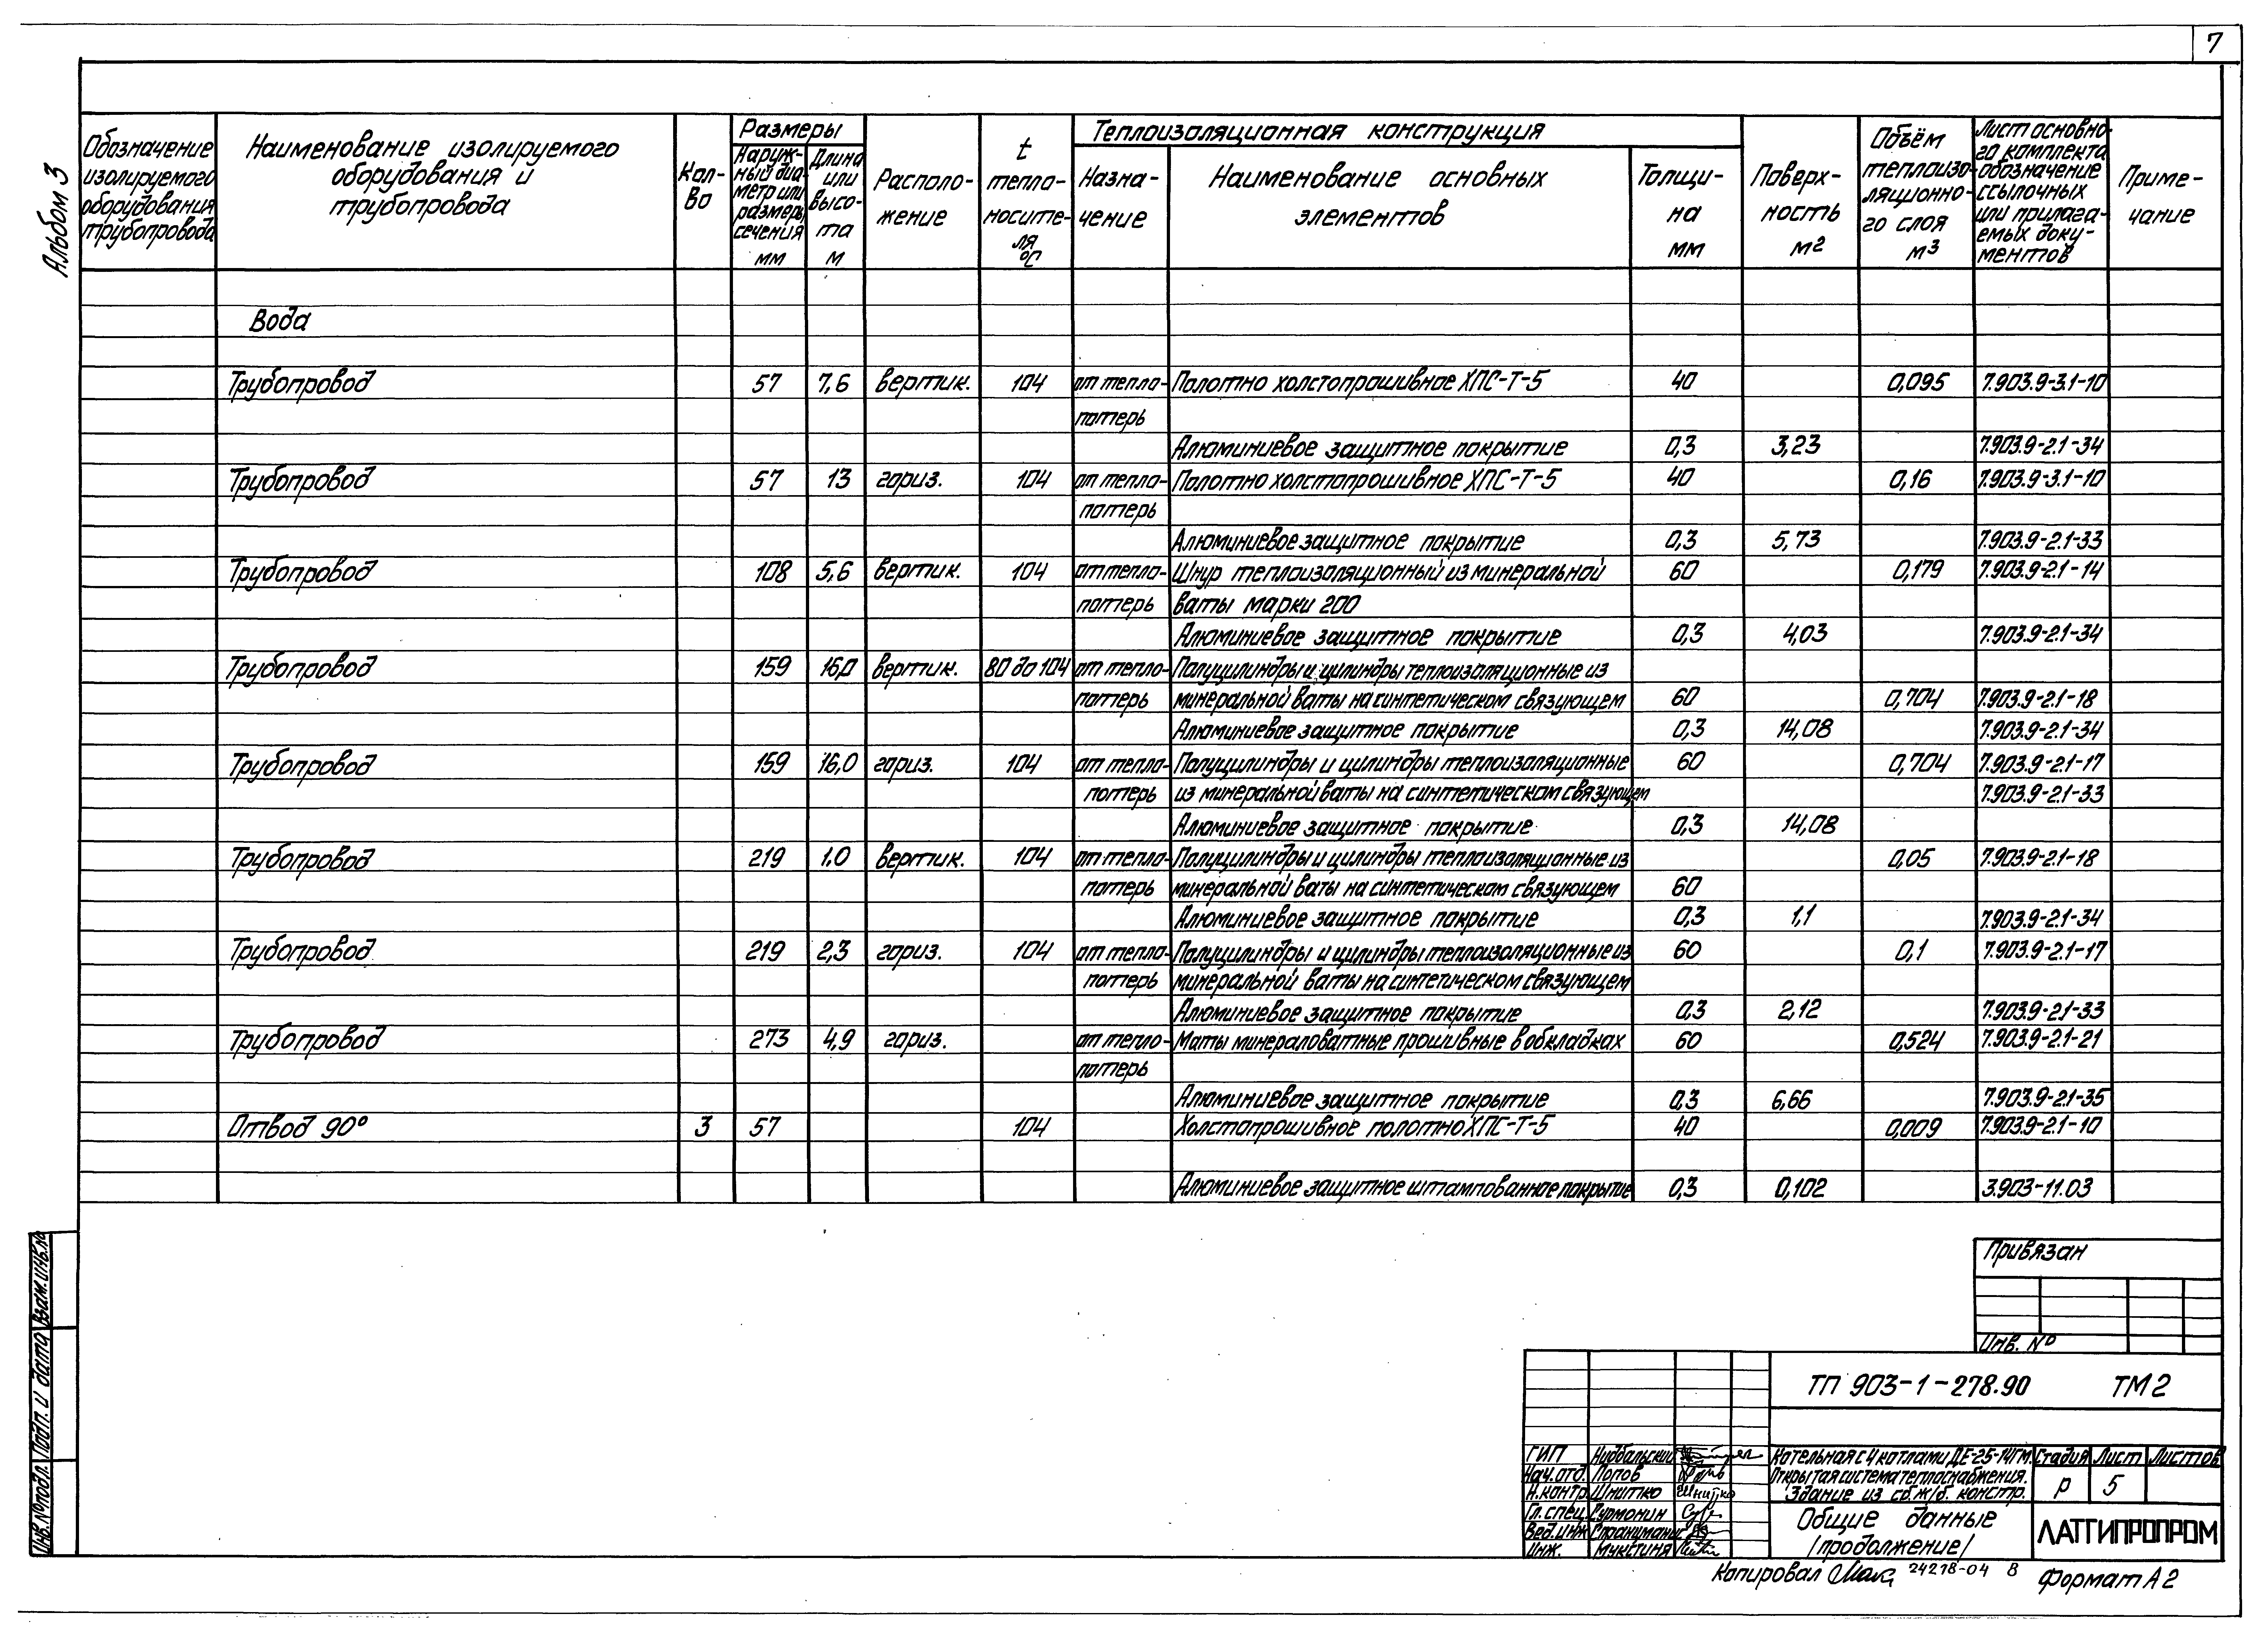 7
Альбом 3
Обозначение изолируемого оборудования трубопровода
Наименование изолируемого оборудования и трубопровода
Кол-во
Размеры
Наруж-ный диа-метр или размеры сечения мм
Длина или высо-та м
Располо-жение
t тепло-носите-ля °С
Теплоизоляционная конструкция
Назна-чение
Наименование основных элементов
Толщи-на мм
Поверх-ность м2
Объём теплоизо-ляционно-го слоя м3
Лист основно-го комплекта обозначение ссылочных или прилага-емых доку-ментов
Приме-чание
Вода
Трубопровод 57 7,6 вертик. 104 от тепло- Полотно холстопрошивное ХПС-Т-5 40 0,095 7.903.9-3.1-10
потерь
Алюминиевое защитное покрытие 0,3 3,23 7.903.9-2.1-34
Трубопровод 57 13 гориз. 104 от тепло- Полотно холстопрошивное ХПС-Т-5 40 0,16 7.903.9-3.1-10
потерь
Алюминиевое защитное покрытие 0,3 5,73 7.903.9-2.1-33
Трубопровод 108 5,6 вертик. 104 от тепло- Шнур теплоизоляционный из минеральной 60 0,179 7.903.9-2.1-14
потерь ваты марки 200
Алюминиевое защитное покрытие 0,3 4,03 7.903.9-2.1-34
Трубопровод 159 16,0 вертик. 80 до 104 от тепло- Полуцилиндры и цилиндры теплоизоляционные из
потерь минеральной ваты на синтетическом связующем 60 0,704 7.903.9-2.1-18
Алюминиевое защитное покрытие 0,3 14,08 7.903.9-2.1-34
Трубопровод 159 16,0 гориз. 104 от тепло- Полуцилиндры и цилиндры теплоизоляционные 60 0,704 7.903.9-2.1-17
потерь из минеральной ваты на синтетическом связующем 7.903.9-2.1-33
Алюминиевое защитное покрытие 0,3 14,08
Трубопровод 219 1.0 вертик. 104 от тепло- Полуцилиндры и цилиндры теплоизоляционные из 0,05 7.903.9-2.1-18
потерь минеральной ваты на синтетическом связующем 60
Алюминиевое защитное покрытие 0,3 1,1 7.903.9-2.1-34
Трубопровод 219 2,3 гориз. 104 от тепло- Полуцилиндры и цилиндры теплоизоляционные из 60 0,1 7.903.9-2.1-17
потерь минеральной ваты на синтетическом связующем
Алюминиевое защитное покрытие 0,3 2,12 7.903.9-2.1-33
Трубопровод 273 4,9 гориз. от тепло- Маты минераловатные прошивные в обкладках 60 0,524 7.903.9-2.1-21
потерь
Алюминиевое защитное покрытие 0,3 6,66 7.903.9-2.1-35
Отвод 90° 3 57 104 Холстопрошивное полотно ХПС-Т-5 40 0,009 7.903.9-2.1-10
Алюминиевое защитное штампованное покрытие 0,3 0,102 3.903-11.03
Взам. инв. №
Подп. и дата
Инв. № подл.
Привязан
Инв. №
ТП 903-1-278.90 ТМ2
ГИП Нидбальский
Нач. отд. Попов
Н. контр. Шнитко
Гл. спец. Сурмонин
Вед. инж.
Инж. Мукстиня
Котельная с 4 котлами ДЕ-25-14ГМ.
Открытая система теплоснабжения.
Здание из сб. ж/б. констр.
Стадия Лист Листов
Р 5
Общие данные
/продолжение/
ЛАТГИПРОПРОМ
Копировал 24218-04 8 Формат А2